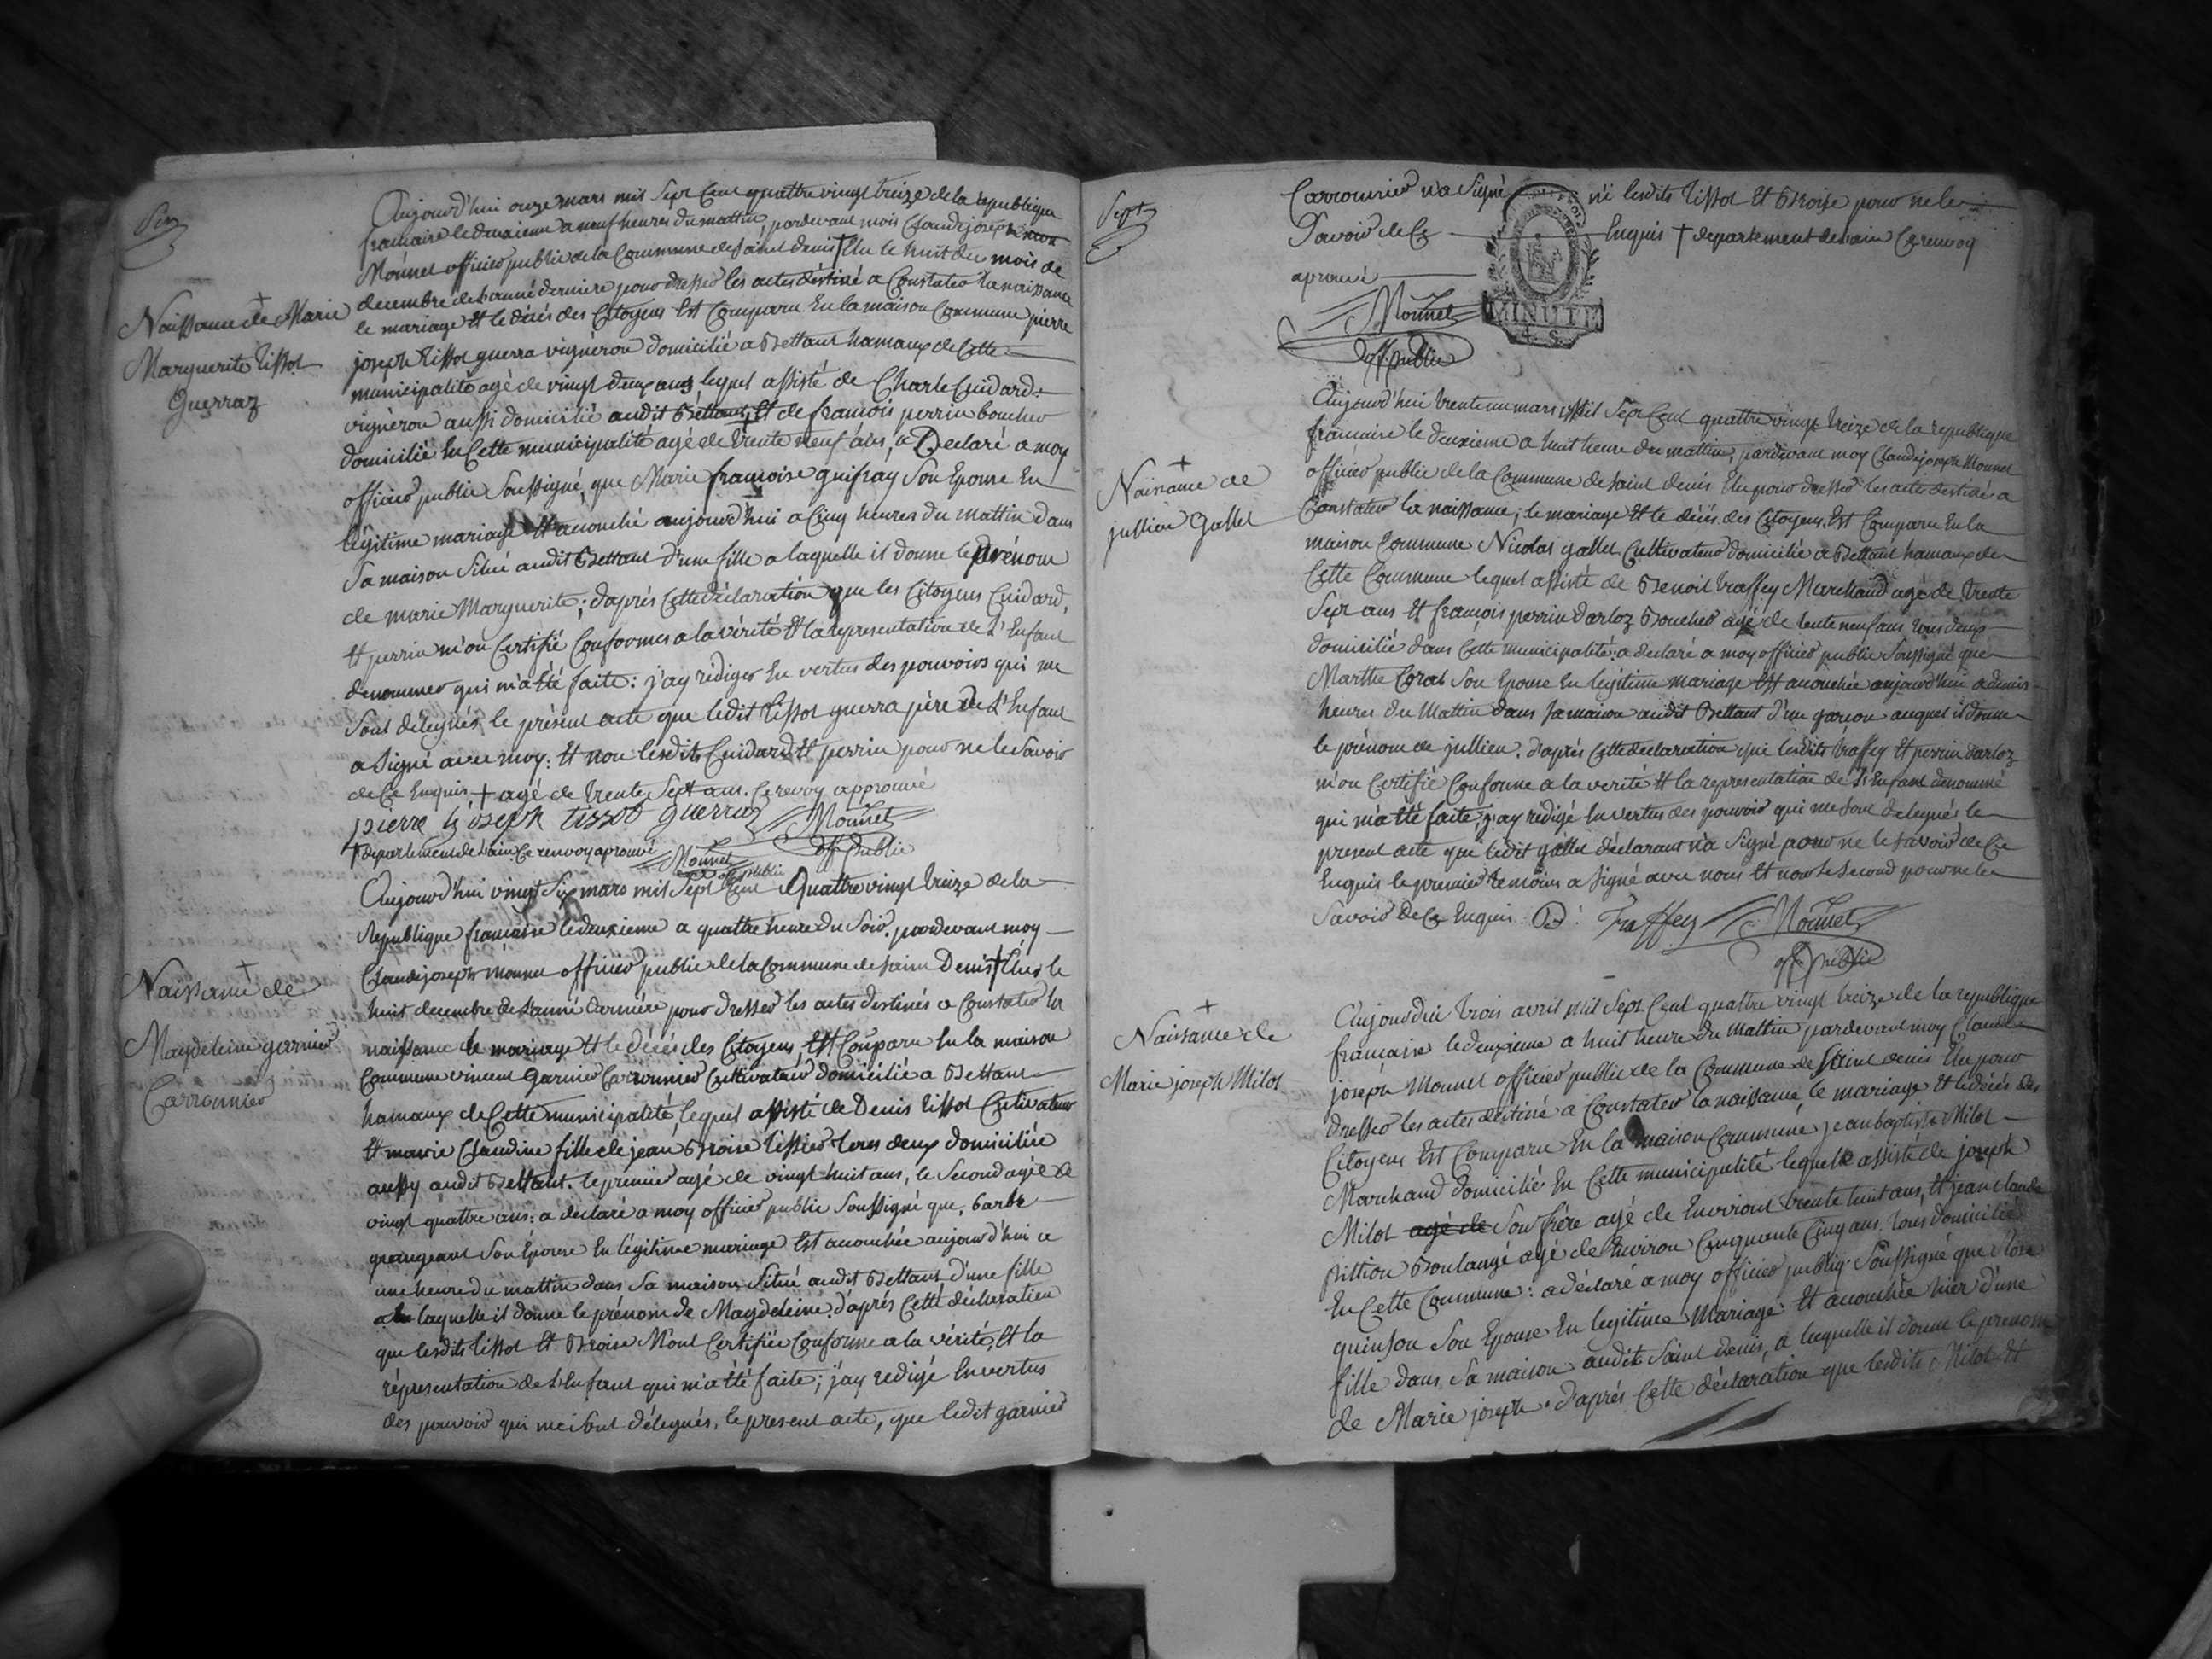 Six
Naissance de Marie
Marguerite Tissot
Guerraz
Aujourd'hui onze mars mis sept Cent quattre vingt treize de la republique
francaise le deuxieme a neuf heures du mattin, pardevant mois Claude joseph
Monnet officier public de la Commune de saint denis † Elu le huit du mois de
decembre de l'anné derniere pour dresser les actes déstiné a Constater la naissance
le mariage Et le décès des Citoyens Est Comparu En la maison Commune pierre
joseph tissot guerra vigneron domicilié a Bettant hamaux de Cette
municipalité agé de vingt deux ans lequel assisté de Charle Cuidard
vigneron aussi domicilié audit Béttant, Et de francois perrin boucher
domicilié En Cette municipalité agé de trente neuf ans, a Declaré a moy
officier public Soussigné, que Marie francoise guifray Son Epouse En
légitime mariage Et acouché aujourd'hui a Cinq heures du mattin dans
Sa maison Situé audit Bettant d'une fille a laquelle il donne le prénom
de marie Marguerite; d'aprés Cette déclaration que les Citoyens Cuidard,
Et perrin m'on Certifié Conformes a la vérité Et la representation de L'Enfant
denommer qui m'a Eté faite: j'ay rédiger En vertus des pouvoirs qui me
Sont délegués le présent acte que ledit tissot guerra pére de L'Enfant
a Signé avec moy: Et non lesdits Cuidard Et perrin pour ne le Savoir
de Ce Enquis, † agé de trente Sept ans. Ce renvoy approuvé
pierre joseph tissot guerraz Monnet
off. public
† departement de l'ain Ce renvoy aprouvé
Monnet
off public
Naissance de
Magdeleine garnier
Carronnier
Aujourd'hui vingt Six mars mil Sept Cent Quattre vingt treize de la
Republique francaise le deuxieme a quattre heure du Soir, pardevant moy
Claude joseph Monnet officier public de la Commune de saint Denis † Elus le
huit decembre de L'anné derniére pour dresser les actes destinés a Constater la
naissance le mariage Et le décés des Citoyens, Est Comparu En la maison
Commune vincent Garnier Carronnier Cultivateur domicilié a Bettant
hamaux de Cette municipalité, lequel assisté de Denis tissot Cultivateur
Et marie Claudine fille de jean Broise tissier tous deux domiciliée
aussy audit Bettant. le premier agé de vingt huit ans, le Second agée de
vingt quattre ans: a declaré a moy officier public Soussigné que, barbe
grangeant Son Epouse En légitime mariage Est acouchée aujourd'hui a
une heure du mattin dans Sa maison Situé audit Bettant, d'une fille
a laquelle il donne le prénom de Magdeleine. d'aprés Cette décleration
que lesdits tissot Et Broise M'ont Certifiée Conforme a la vérité, Et la
répresentation de L'Enfant qui m'a Eté faite; j'ay redigé En vertus
des pouvoir qui me Sont délegués, le present acte, que ledit garnier
Sept
Carronnier n'a Signé ni lesdits tissot Et Broise pour ne le
Savoir de Ce Enquis † departement de l'ain Ce renvoy
aprouvé
MINUTE
4. S.
Monnet
off. public
Naissance de
jullien Gallet
Aujourd'hui trente un mars Mil Sept Cent quattre vingt treize de la republique
francaise le deuxieme a huit heure du mattin, pardevant moy Claude joseph Monnet
officier public de la Commune de saint denis Elu pour dresser les acte destiné a
Constater la naissance; le mariage Et le décés des Citoyens, Est Comparu En la
maison Commune Nicolas gallet Cultivateur domicilié a Bettant hamaux de
Cette Commune lequel assisté de Benoit traffey Marchand agé de trente
Sept ans Et francois perrin darloz Boucher agé de trente neuf ans tous deux
domicilié dans Cette municipalité: a declaré a moy officier public Soussigné que
Marthe Coral Son Epouse En legitime mariage Est acouchée aujourd'hui a deux
heures du Mattin dans Sa maison audit Bettant d'un garcon auquel il donne
le prénom de jullien. d'aprés Cette declaration que lesdits traffey Et perrin darloz
m'on Certifié Conforme a la verité Et la representation de L'Enfant denommé
qui m'a Eté faite, j'ay redigé En vertus des pouvoir qui me sont delegués le
present acte que ledit gallet déclarant n'a Signé pour ne le savoir de Ce
Enquis le premier temoins a Signé avec nous Et non le Second pour ne le
Savoir de Ce Enquis B: traffey Monnet
off. public
Naissance de
Marie joseph Milot
Aujourdui trois avril Mil Sept Cent quattre vingt treize de la republique
francaise le deuxieme a huit heure du Mattin pardevant moy Claude
joseph Monnet officier public de la Commune de Saint denis Elu pour
dresser les actes destiné a Constater la naissance, le mariage Et le décés des
Citoyens Est Comparu En la maison Commune jean baptiste Milot
Marchand domicilié En Cette municipalité lequelle assisté de joseph
Milot agé de Son frére agé de Environt trente huit ans, Et jean Claude
pittion Boulangé agé de Environ Cinquante Cinq ans, tous domicilié
En Cette Commune: a déclaré a moy officier public Soussigné que
quinson Son Epouse En legitime Mariage Et acouchée hier d'une
fille dans Sa maison audit Saint denis, a lequelle il donne le prenom
de Marie joseph. d'aprés Cette déclaration que lesdits Milot Et